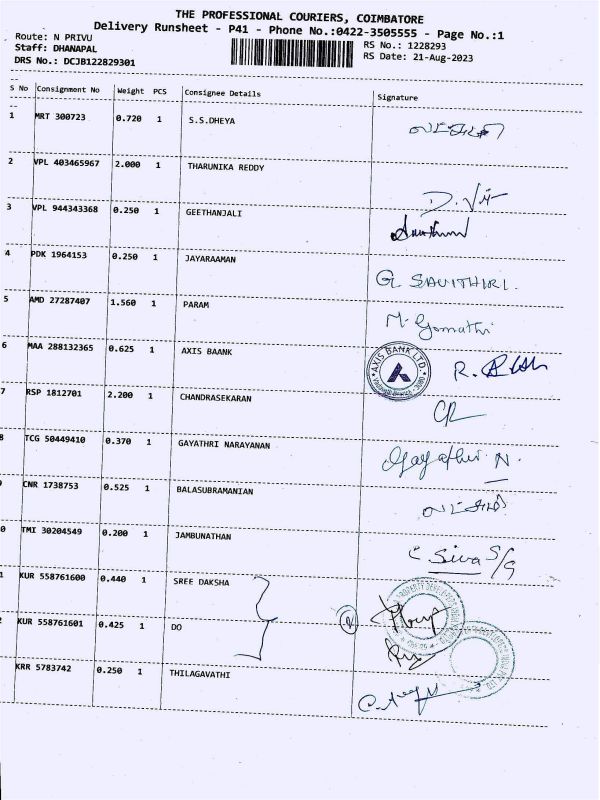 THE PROFESSIONAL COURIERS, COIMBATORE
Delivery Runsheet - P41 - Phone No.:0422-3505555 - Page No.:1
Route: N PRIVU RS No.: 1228293
Staff: DHANAPAL RS Date: 21-Aug-2023
DRS No.: DCJB122829301
S No Consignment No Weight PCS Consignee Details Signature
1 MRT 300723 0.720 1 S.S.DHEYA
2 VPL 403465967 2.000 1 THARUNIKA REDDY
3 VPL 944343368 0.250 1 GEETHANJALI
4 PDK 1964153 0.250 1 JAYARAAMAN G. SAVITHIRI.
5 AMD 27287407 1.560 1 PARAM M. Gomathi
6 MAA 288132365 0.625 1 AXIS BAANK AXIS BANK LTD. R.
7 RSP 1812701 2.200 1 CHANDRASEKARAN
8 TCG 50449410 0.370 1 GAYATHRI NARAYANAN Gayathri. N.
CNR 1738753 0.525 1 BALASUBRAMANIAN
0 TMI 30204549 0.200 1 JAMBUNATHAN C Siva S/G
1 KUR 558761600 0.440 1 SREE DAKSHA
2 KUR 558761601 0.425 1 DO
KRR 5783742 0.250 1 THILAGAVATHI